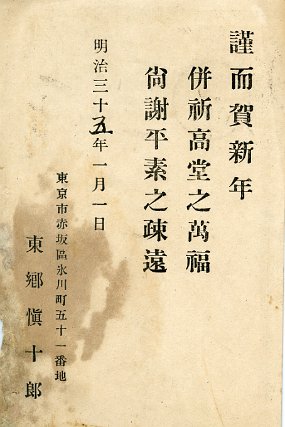 謹而賀新年
併祈高堂之萬福
尙謝平素之疎遠
明治三十五年一月一日
東京市赤坂區氷川町五十一番地
東鄉愼十郎